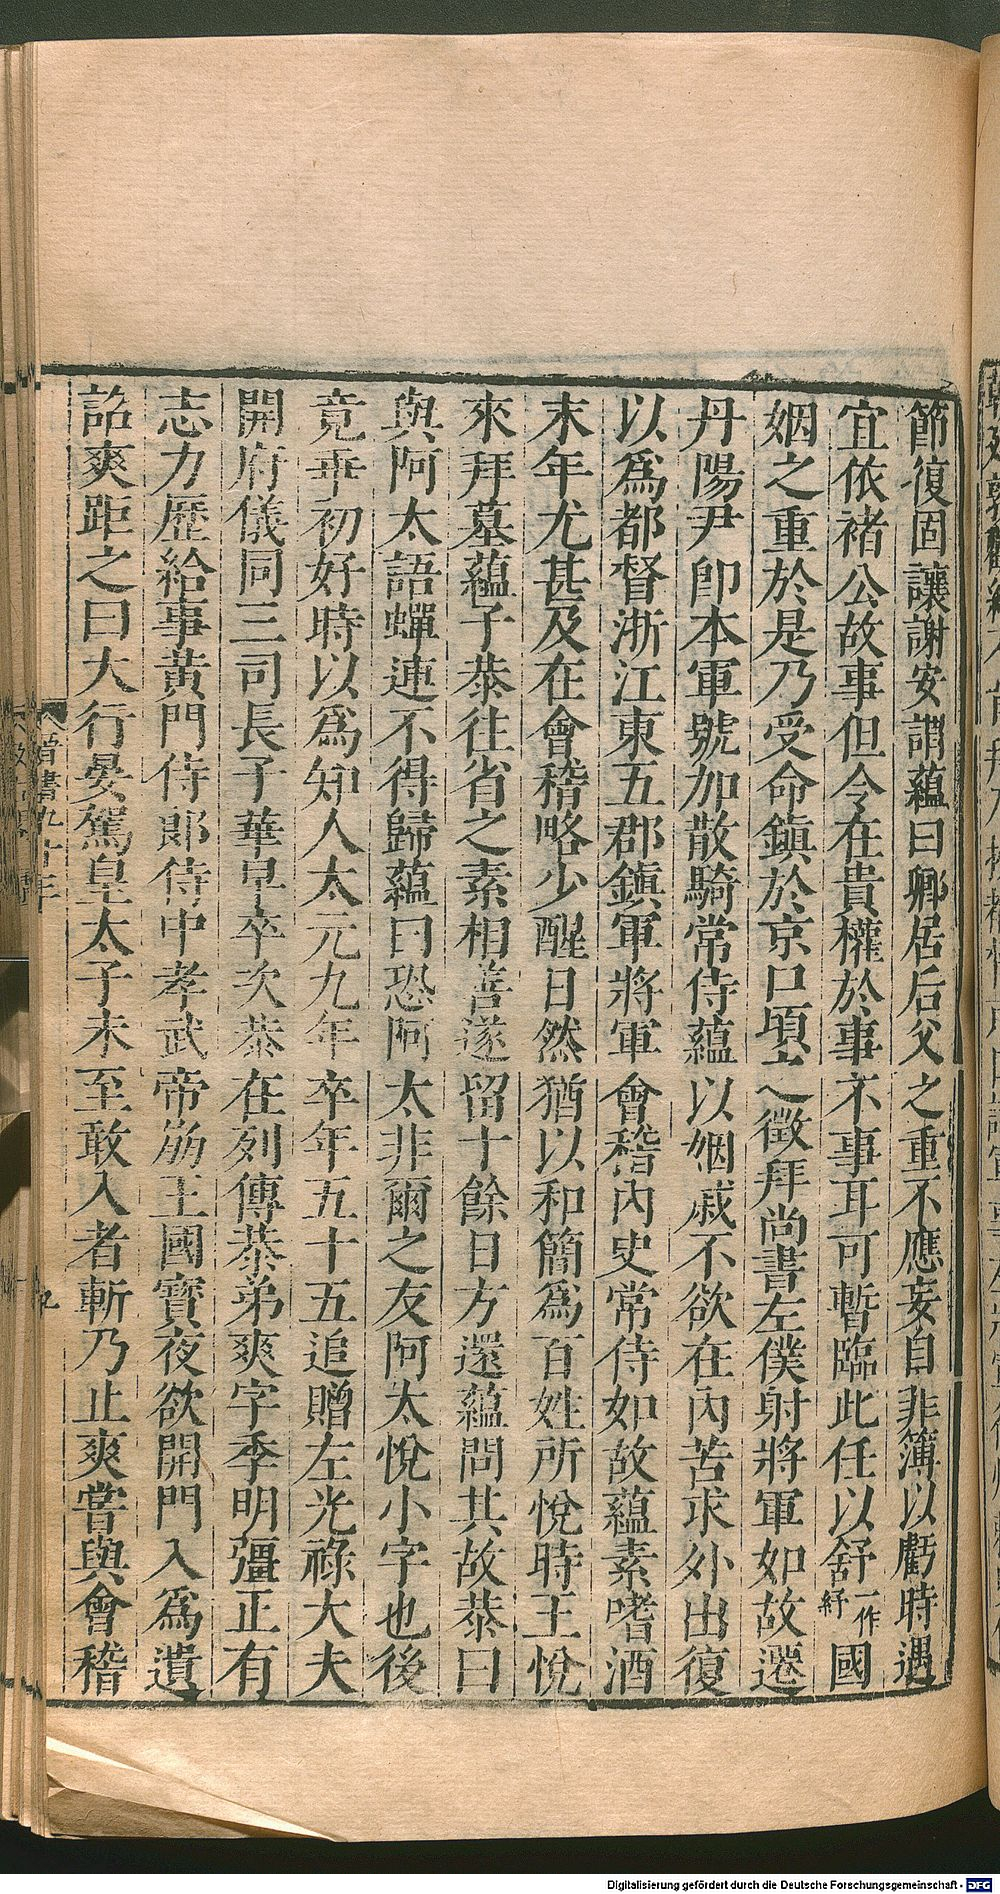 節復固讓謝安謂蘊曰卿居后父之重不應妄自非薄以虧時遇
宜依褚公故事但令在貴權於事不事耳可暫臨此任以舒一作紓國
姻之重於是乃受命鎮於京口頃之徵拜尚書左僕射將軍如故遷
丹陽尹卽本軍號加散騎常侍蘊以姻戚不欲在內苦求外出復
以爲都督浙江東五郡鎮軍將軍會稽內史常侍如故蘊素嗜酒
末年尤甚及在會稽略少醒日然猶以和簡爲百姓所悅時王悅
來拜墓蘊子恭往省之素相善遂留十餘日方還蘊問其故恭曰
與阿太語蟬連不得歸蘊曰恐阿太非爾之友阿太悅小字也後
竟乖初好時以爲知人太元九年卒年五十五追贈左光祿大夫
開府儀同三司長子華早卒次恭在列傳恭弟爽字季明彊正有
志力歷給事黃門侍郎侍中孝武帝崩王國寶夜欲開門入爲遺
詔爽距之曰大行晏駕皇太子未至敢入者斬乃止爽嘗與會稽
晉書九十三
九
Digitalisierung gefördert durch die Deutsche Forschungsgemeinschaft - DFG